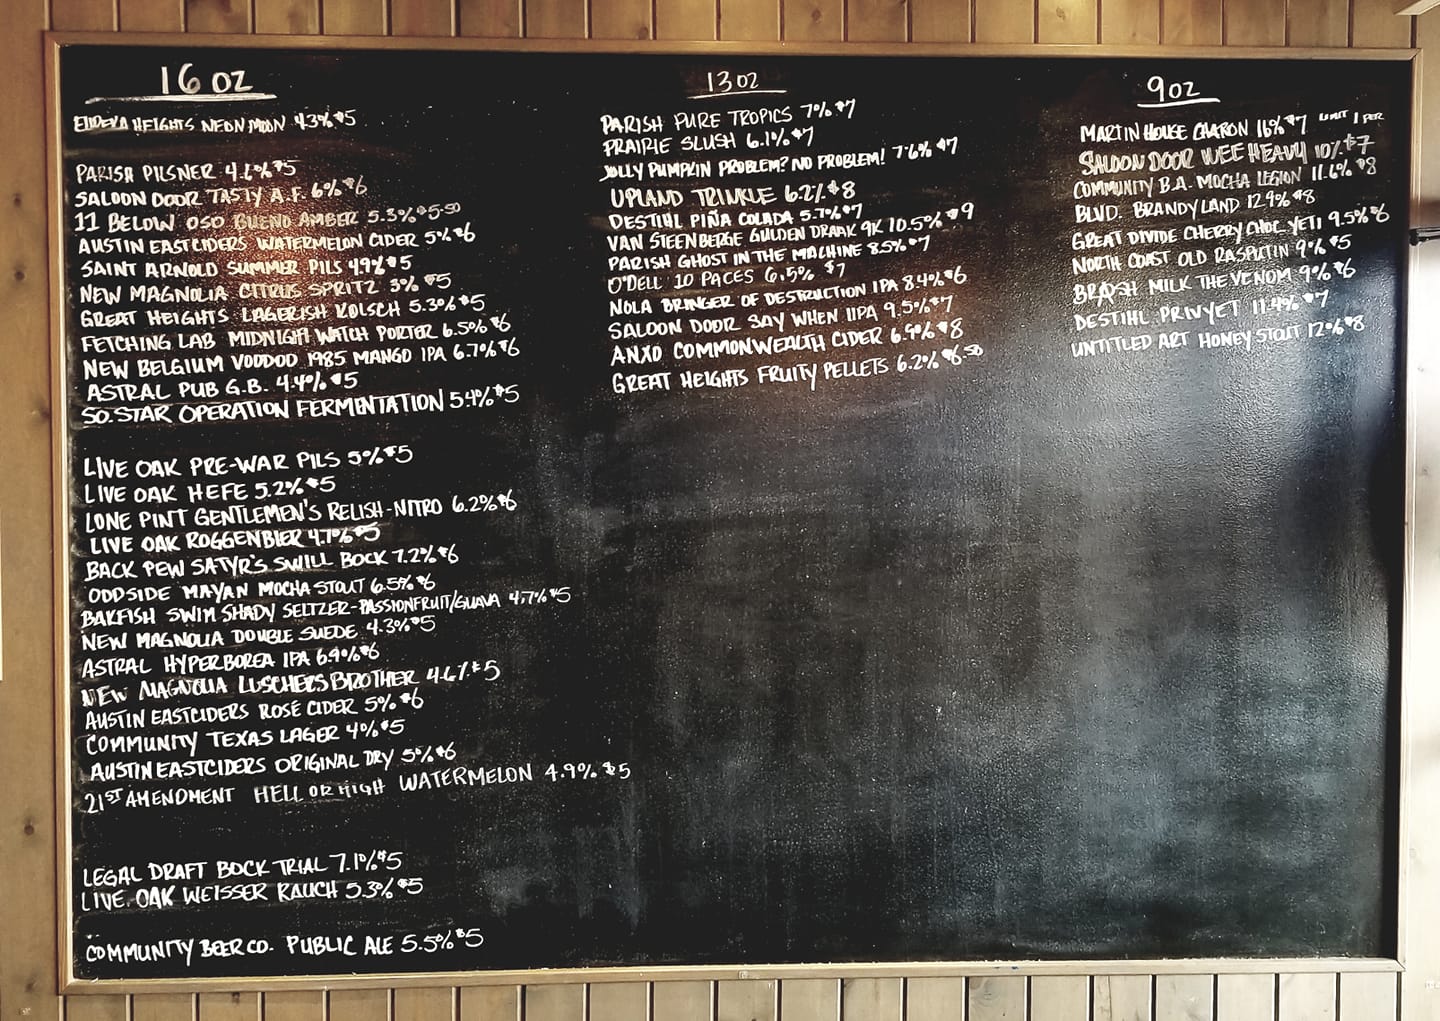 16 OZ
EUREKA HEIGHTS NEON MOON 4.3% $5
PARISH PILSNER 4.6% $5
SALOON DOOR TASTY A.F. 6% $6
11 BELOW OSO BUENO AMBER 5.3% $5.50
AUSTIN EASTCIDERS WATERMELON CIDER 5% $6
SAINT ARNOLD SUMMER PILS 4.9% $5
NEW MAGNOLIA CITRUS SPRITZ 3% $5
GREAT HEIGHTS LAGERISH KOLSCH 5.3% $5
FETCHING LAB MIDNIGHT WATCH PORTER 6.50% $6
NEW BELGIUM VOODOO 1985 MANGO IPA 6.7% $6
ASTRAL PUB G.B. 4.4% $5
SO. STAR OPERATION FERMENTATION 5.4% $5
LIVE OAK PRE-WAR PILS 5% $5
LIVE OAK HEFE 5.2% $5
LONE PINT GENTLEMEN'S RELISH-NITRO 6.2% $6
LIVE OAK ROGGENBIER 4.7% $5
BACK PEW SATYR'S SWILL BOCK 7.2% $6
ODDSIDE MAYAN MOCHA STOUT 6.5% $6
BAKFISH SWIM SHADY SELTZER-PASSIONFRUIT/GUAVA 4.7% $5
NEW MAGNOLIA DOUBLE SUEDE 4.3% $5
ASTRAL HYPERBOREA IPA 6.9% $6
NEW MAGNOLIA LUSCHERS BROTHER 4.6% $5
AUSTIN EASTCIDERS ROSÉ CIDER 5% $6
COMMUNITY TEXAS LAGER 4% $5
AUSTIN EASTCIDERS ORIGINAL DRY 5% $6
21ST AMENDMENT HELL OR HIGH WATERMELON 4.9% $5
LEGAL DRAFT BOCK TRIAL 7.1% $5
LIVE OAK WEISSER RAUCH 5.3% $5
COMMUNITY BEER CO. PUBLIC ALE 5.5% $5
13 OZ
PARISH PURE TROPICS 7% $7
PRAIRIE SLUSH 6.1% $7
JOLLY PUMPKIN PROBLEM? NO PROBLEM! 7.6% $7
UPLAND TRINKLE 6.2% $8
DESTIHL PIÑA COLADA 5.7% $7
VAN STEENBERGE GULDEN DRAAK 9K 10.5% $9
PARISH GHOST IN THE MACHINE 8.5% $7
O'DELL 10 PACES 6.5% $7
NOLA BRINGER OF DESTRUCTION IPA 8.4% $6
SALOON DOOR SAY WHEN IIPA 9.5% $7
ANXO COMMONWEALTH CIDER 6.9% $8
GREAT HEIGHTS FRUITY PELLETS 6.2% $6.50
9 OZ
MARTIN HOUSE CHARON 16% $7 LIMIT 1 PER
SALOON DOOR WEE HEAVY 10% $7
COMMUNITY B.A. MOCHA LEGION 11.6% $8
BLVD. BRANDYLAND 12.9% $8
GREAT DIVIDE CHERRY CHOC YETI 9.5% $6
NORTH COAST OLD RASPUTIN 9% $5
BRASH MILK THE VENOM 9% $6
DESTIHL PRIVYET 11.4% $7
UNTITLED ART HONEY STOUT 12% $8